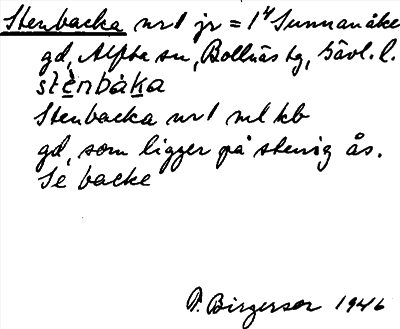 Stenbacka nr 1 jr = 1⁴ Sunnanåker
gd, Alfta sn, Bollnäs tg, Gävl. l.
stènbáka
Stenbacka nr 1 ml kb
gd, som ligger på stenig ås.
Se backe
P. Birgerson 1946